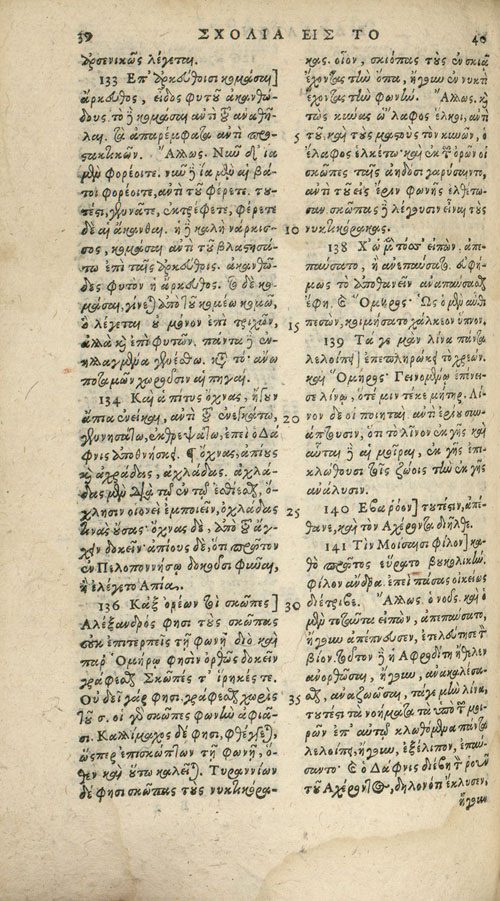 39 ΣΧΟΛΙΑ ΕΙΣ ΤΟ 40
ἀρσενικῶς λέγεται.
133 Ἐπ' ἀρκεύθοισι κομάσαι]
ἄρκευθος, εἶδος φυτοῦ ἀκανθώ-
δους. τὸ ἢ κομάσαι ἀντὶ τοῦ ἀνθῆ-
λαι. τὰ ἀπαρέμφατα ἀντὶ προ-
στακτικῶν. Ἄλλως. Νῦν δ' ἴα
μὲν φορέοιτε. νῦν ἴα μὲν αἱ βά-
τοι φορέοιτε, ἀντὶ τοῦ φέρετε. του-
τέστι, γεννᾶτε, ἐκτρέφετε, φέρετε
δὲ αἱ ἄκανθαι. ἡ καλὴ νάρκισ-
σος, κομάσαι ἀντὶ τοῦ βλαστησά-
τω ἐπὶ ταῖς ἀρκεύθοις. ἀκανθῶ-
δες φυτὸν ἡ ἄρκευθος. τὸ δὲ κο-
μάσαι, γίνεται ἀπὸ τοῦ κομέω κομῶ,
ὃ λέγεται οὐ μόνον ἐπὶ τριχῶν,
ἀλλὰ καὶ ἐπὶ φυτῶν. πάντα
γενέσθω. καὶ τό· ἄνω
ποταμῶν χωροῦσιν αἱ πηγαί.
134 Καὶ ἁ πίτυς ὄχνας, ἤγουν
ἄπια ἐνείκαι, ἀντὶ τοῦ ἐνεγκάτω,
γεννησάτω, ἐκθρεψάτω, ἐπεὶ ὁ Δά
φνις ἀποθνήσκει. ¶ ὄχνας, ἀπίους
καὶ ἀχράδας, ἀχλάδας. ἀχλά-
δας μὲν διὰ τὸ ἐν τῷ ἐσθίεσθαι, ὄ-
χλησιν οἱονεὶ ἐμποιεῖν, ὀχλάδας
τινὰς οὔσας· ὄχνας δὲ, ἀπὸ τοῦ ἄγ-
χειν δοκεῖν· ἀπίους δέ, ὅτι πρῶτον
ἐν Πελοποννήσῳ δοκοῦσι φῦναι,
ἣ ἐλέγετο Ἀπία.
136 Κᾀξ ὀρέων τοὶ σκῶπες]
Ἀλέξανδρός φησι τοὺς σκῶπας
οὐκ ἐπιτερπεῖς τῇ φωνῇ· διὸ καὶ
παρ' Ὁμήρῳ φησὶν ὀρθῶς δοκεῖν
γράφεσθαι Σκῶπές τ' ἴρηκές τε.
Οὐ δεῖ γάρ φησι γράφεσθαι χωρὶς
τοῦ σ. οἱ γὰρ σκῶπες φωνὴν ἀφιᾶ-
σι. Καλλίμαχος δέ φησι, φθέγγεται,
ὥσπερ ἐπισκώπτων τῇ φωνῇ, ὅ-
θεν καὶ οὕτω καλεῖται. Τυραννίων
δέ φησι σκῶπας τοὺς νυκτικόρα-
κας. οἷον, σκιόπας τοὺς ἐν σκιᾷ
ἔχοντας τὴν ὄπα, ἤγουν ἐν νυκτὶ
ἔχοντας τὴν φωνήν. Ἄλλως. καὶ
τὼς κύνας ὥλαφος ἕλκοι, ἀντὶ
5 τοῦ, καὶ τοὺς μαζοὺς τῶν κυνῶν, ὁ
ἔλαφος ἑλκέτω· καὶ ἐκ τῶν ὀρῶν οἱ
σκῶπες ταῖς ἀηδόσι γαρύσαιντο,
ἀντὶ τοῦ εἰς ἔριν φωνῆς ἐλθέτω-
σαν. σκῶπας λέγουσιν εἶναι τοὺς
10 νυκτικόρακας.
138 Χ' ὡ μὲν τόσσ' εἰπὼν, ἀπε-
παύσατο, ἢ ἀνεπαύσατο. εὐφή-
μως τὸ ἀποθανεῖν ἀναπαύσασθαι
ἔφη. καὶ Ὅμηρος· Ὣς ὁ μὲν αὖθι
15 πεσὼν, κοιμήσατο χάλκεον ὕπνον.
139 Τά γε μὰν λίνα πάντα
λελοίπῃ] ἐπεπλήρωκε τὸ χρεών.
καὶ Ὅμηρος· Γεινομένῳ ἐπένει-
σε λίνῳ, ὅτέ μιν τέκε μήτηρ. Λί-
20 νον δὲ οἱ ποιηταὶ ἀντὶ ἐρίου σω-
άπτουσιν, ὅτι τὸ λίνον ἐκ γῆς καὶ
αὕτα ἢ αἱ μοῖραι, ἐκ γῆς ἐπι-
κλώθουσι τοῖς ζώοις τὴν ἐκ γῆς
ἀνάλυσιν.
25 140 Ἔβα ῥόον] τουτέστιν, ἀπέ-
θανε, καὶ τὸν Ἀχέροντα διῆλθε.
141 Τὸν Μοίσαισι φίλον] κα-
θὸ πρῶτος εὕρατο βουκολικὴν.
φίλον ἄνδρα. ἐπεὶ πάσας οἰκείως
30 διέτριβε. Ἄλλως. ὁ νοῦς. καὶ ὁ
μὲν τοσαῦτα εἰπὼν, ἀπεπαύσατο,
ἤγουν ἀπέπνευσεν, ἐτελεύτησε τὸν
βίον. τοῦτον ἡ Ἀφροδίτη ἤθελεν
ἀνορθῶσαι, ἤγουν, ἀνακαλέσα-
35 σθαι, ἀναζωῶσαι, τά γε μὴν λίνα,
τουτέστι τὰ νοήματα τὰ ὑπὸ τῶν μοι-
ρῶν ἐπ' αὐτῷ κλωθόμενα πάντα
λελοίπῃ, ἤγουν, ἐξέλιπον, ἐπαύ-
σαντο. καὶ ὁ Δάφνις διέβη τὸν ῥοῦν
τοῦ Ἀχέροντος, δηλονότι ἔκλυσεν,
ἤγουν